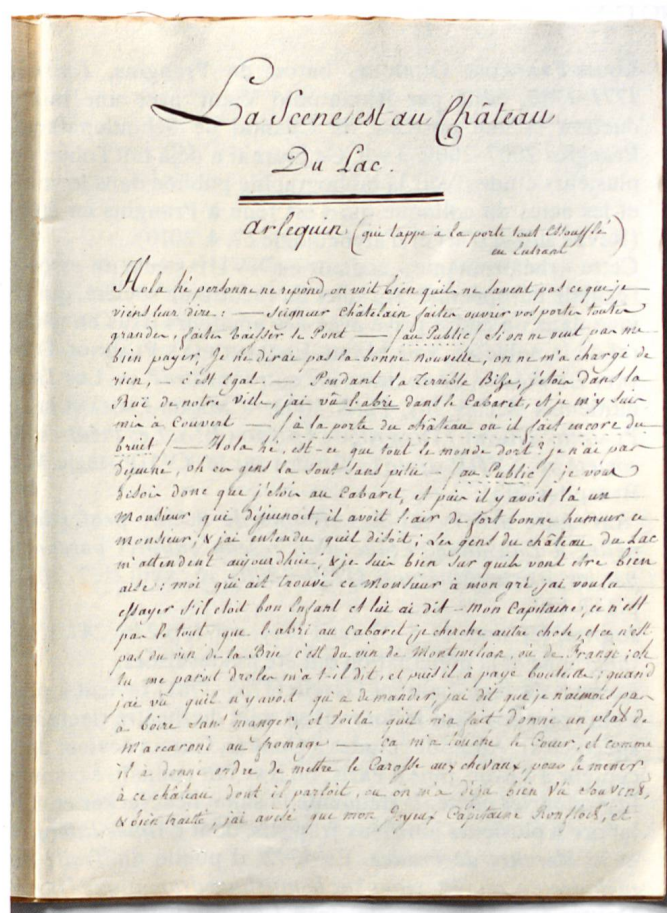 La Scene est au Château
Du Lac.
arlequin (qui tappe à la porte tout Essoufflé
en Entrant
Hola hé personne ne repond, on voit bien quil ne savent pas ce que je
viens leur dire : — seigneur châtelain faites ouvrir vos portes toutes
grandes, faites baisser le Pont — /au Public/ Si on ne veut pas me
bien payer, Je ne dirai pas la bonne nouvelle ; on ne m'a chargé de
rien, – c'est Egal. — Pendant la Terrible Bise, j'etois dans la
Ruë de notre ville, jai vû l'abri dans le Cabaret, et je m'y suis
mis à Couvert — /à la porte du château où il fait encore du
bruit/ — Hola hé, est-ce que tout le monde dort ? je n'ai pas
déjeuné, oh ces gens la sont sans pitié – /au Public/ je vous
disois donc que j'etois au Cabaret, et puis il y avoit là un
Monsieur qui déjeunoit, il avoit l'air de fort bonne humeur ce
Monsieur, & jai entendu quil disoit ; Les gens du château du Lac
m'attendent aujourdhui, & je suis bien sur quils vont etre bien
aise : moi qui ait trouvé ce Monsieur à mon gré, jai voulu
essayer s'il etoit bon Enfant et lui ai dit – Mon Capitaine, ce n'est
pas le tout que l'abri au Cabaret je cherche autre chose, et ce n'est
pas du vin de la Brie c'est du vin de Montmelian, ou de Frangi ; oh
tu me parois droles m'a t-il dit, et puis il à payé bouteille ; quand
jai vû quil n'y avoit qu'a demander, jai dit que je n'aimois pas
à boire sans manger, et voila quil m'a fait donné un plat de
Maccaroni au fromage — ça m'a touché le Coeur, et comme
il à donné ordre de mettre le Carosse aux chevaux, pour le mener
à ce château dont il parloit, ou on m'a deja bien vû souvent,
& bien traitté, jai avisé que mon Joyeux Capitaine Ronflock, et